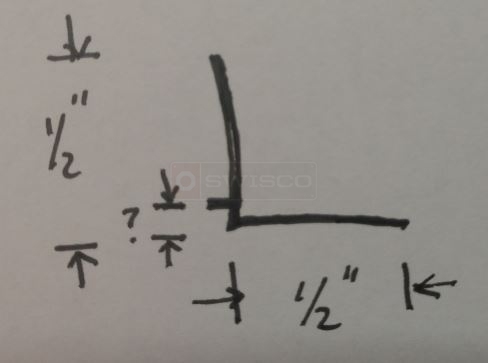 1/2"
?
SWISCO
1/2"